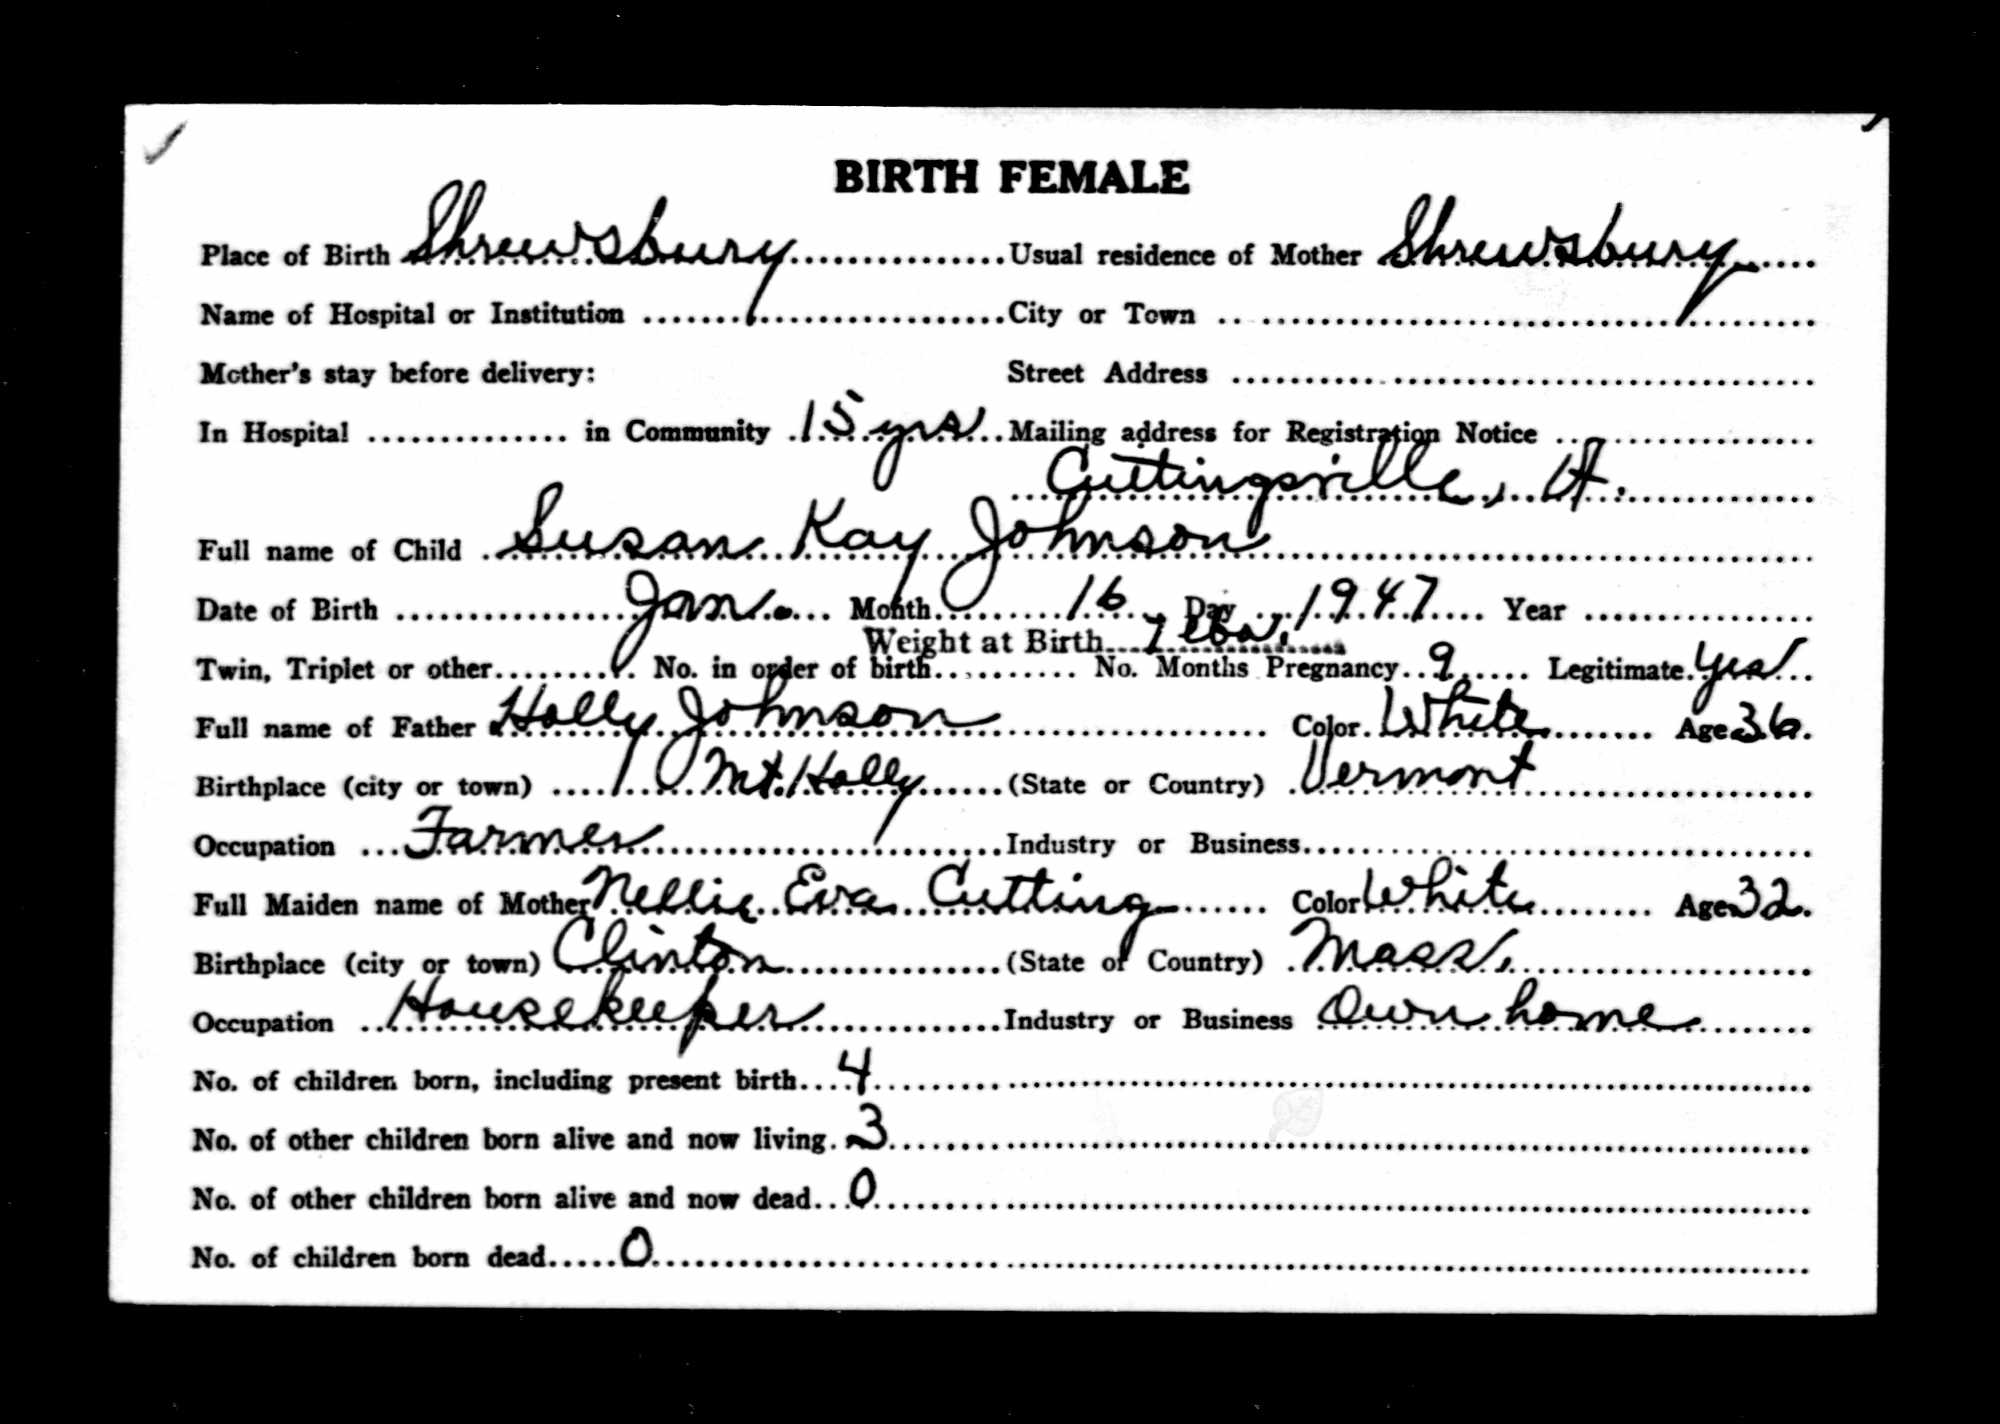 BIRTH FEMALE
Place of Birth Shrewsbury Usual residence of Mother Shrewsbury
Name of Hospital or Institution City or Town
Mother's stay before delivery: Street Address
In Hospital in Community 15 yrs Mailing address for Registration Notice
Cuttingsville, Vt.
Full name of Child Susan Kay Johnson
Date of Birth Jan. Month 16 Day 1947 Year
Weight at Birth 7 lbs.
Twin, Triplet or other No. in order of birth No. Months Pregnancy 9 Legitimate Yes
Full name of Father Holly Johnson Color White Age 36
Birthplace (city or town) Mt. Holly (State or Country) Vermont
Occupation Farmer Industry or Business
Full Maiden name of Mother Nellie Eva Cutting Color White Age 32
Birthplace (city or town) Clinton (State or Country) Mass.
Occupation Housekeeper Industry or Business Own home
No. of children born, including present birth 4
No. of other children born alive and now living 3
No. of other children born alive and now dead 0
No. of children born dead 0